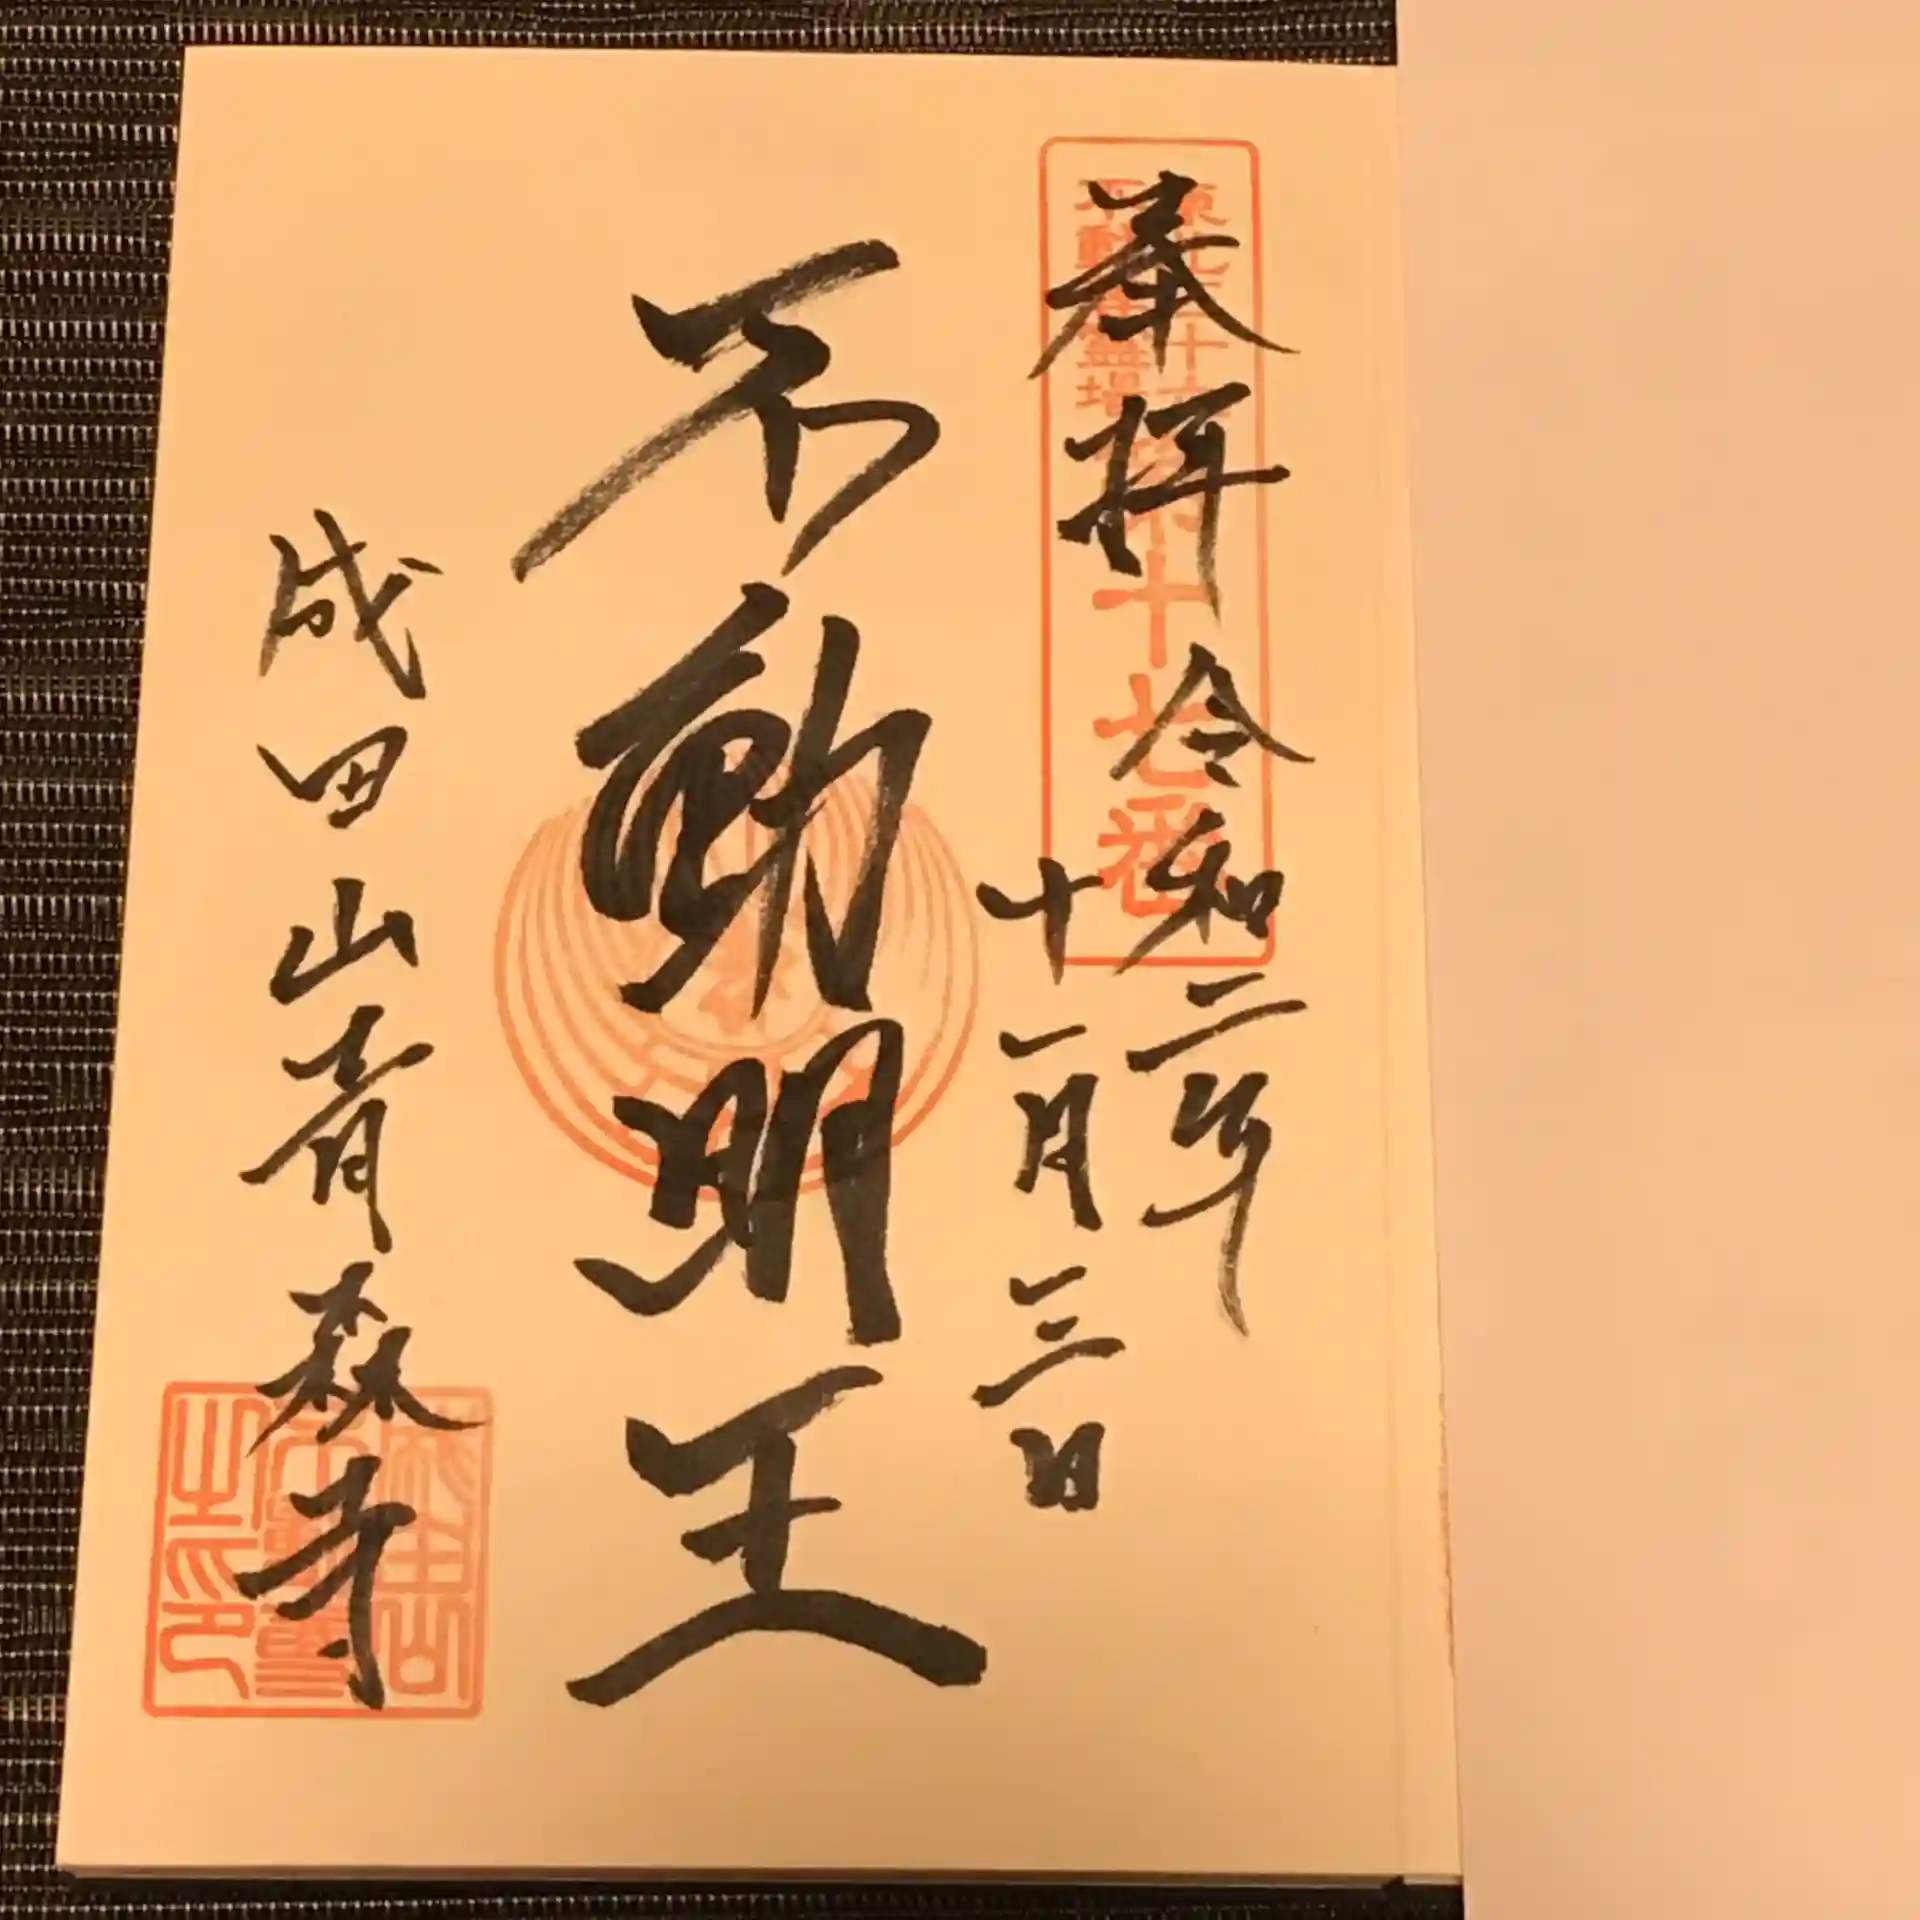 奉拝
令和二年
十一月三日
東北三十六
不動尊霊場
第十七番
不動明王
成田山青森寺